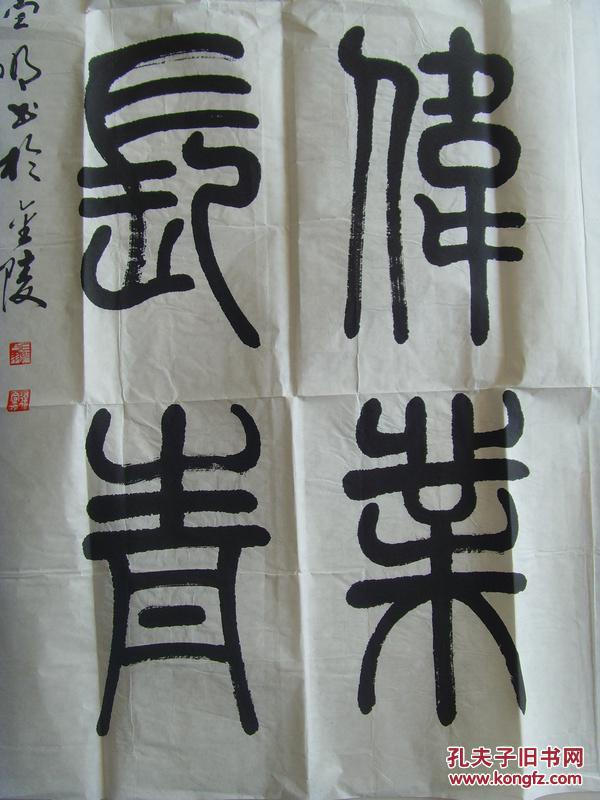 偉業
長青
堂明书於金陵
孔夫子旧书网
www.kongfz.com